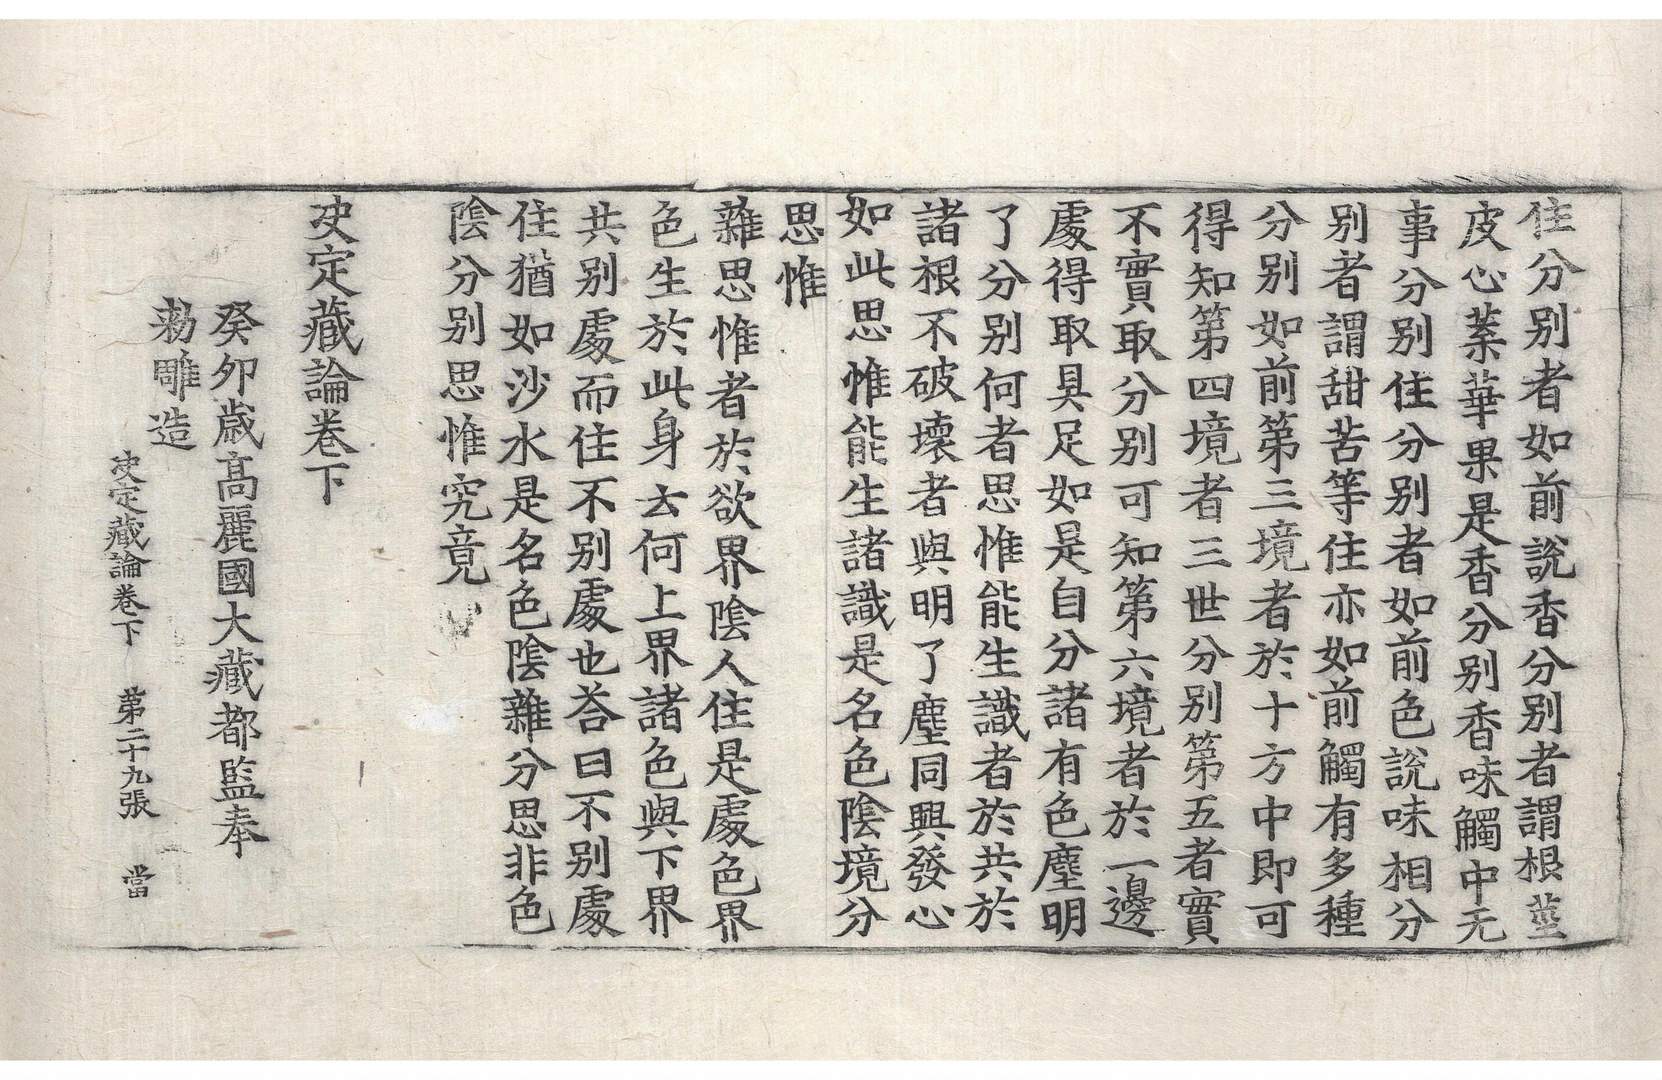 住分别者如前說香分别者謂根莖
皮心葉華果是香分别香味觸中无
事分别住分别者如前色說味相分
别者謂甜苦等住亦如前觸有多種
分别如前第三境者於十方中即可
得知第四境者三世分别第五者實
不實取分别可知第六境者於一邊
處得取具足如是自分諸有色塵明
了分别何者思惟能生識者於共於
諸根不破壞者與明了塵同興發心
如此思惟能生諸識是名色陰境分
思惟
雜思惟者於欲界陰人住是處色界
色生於此身去何上界諸色與下界
共别處而住不别處也荅曰不别處
住猶如沙水是名色陰雜分思非色
陰分别思惟究竟
决定藏論卷下
癸卯歲高麗國大藏都監奉
勑雕造
决定藏論卷下 第二十九張 當